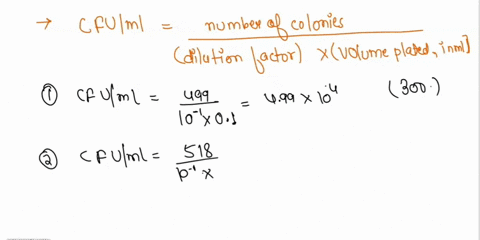 → CFU/ml = number of colonies / (dilution factor) × (volume plated, in ml]
① CFU/ml = 499 / 10⁻¹ × 0.1 = 4.99 × 10⁴ (300.)
② CFU/ml = 518 / 10⁻¹ ×